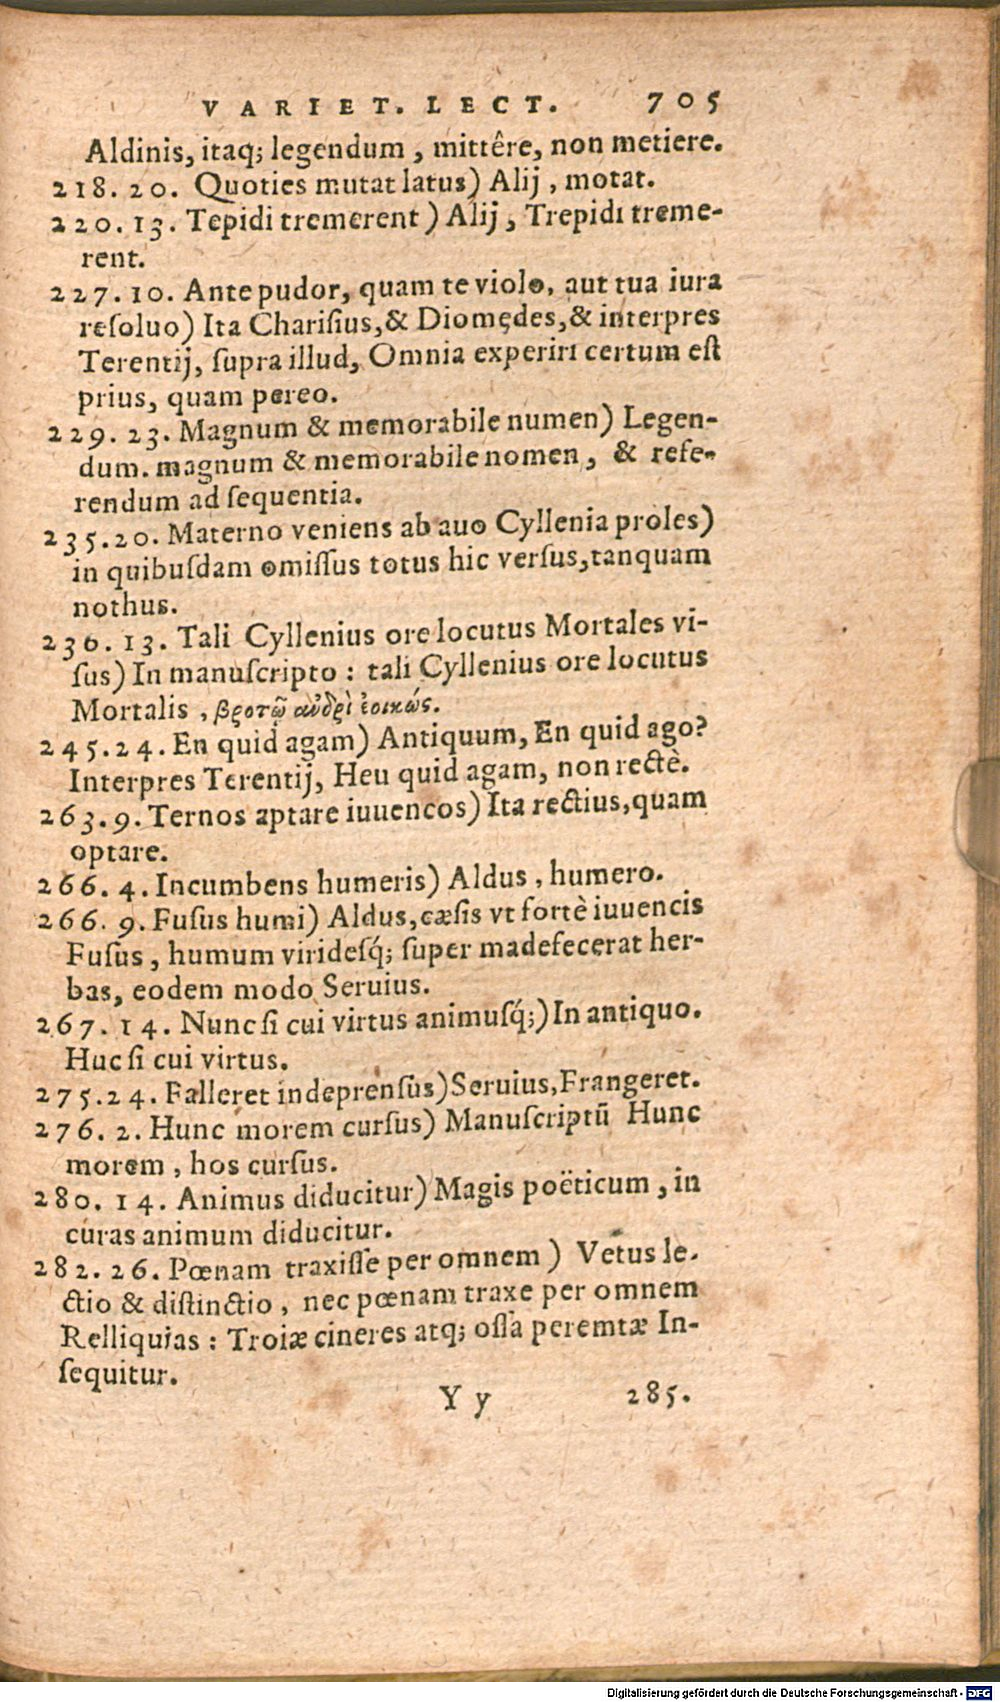 VARIET. LECT. 705
Aldinis, itaq; legendum, mittêre, non metiere.
218. 20. Quoties mutat latus) Alij, motat.
220. 13. Tepidi tremerent) Alij, Trepidi treme-
rent.
227. 10. Ante pudor, quam te violo, aut tua iura
reſoluo) Ita Chariſius, & Diomędes, & interpres
Terentij, ſupra illud, Omnia experiri certum eſt
prius, quam pereo.
229. 23. Magnum & memorabile numen) Legen-
dum. magnum & memorabile nomen, & refe-
rendum ad ſequentia.
235. 20. Materno veniens ab auo Cyllenia proles)
in quibuſdam omiſſus totus hic verſus, tanquam
nothus.
236. 13. Tali Cyllenius ore locutus Mortales vi-
ſus) In manuſcripto : tali Cyllenius ore locutus
Mortalis, βροτῷ ἀνδρὶ ἐοικώς.
245. 24. En quid agam) Antiquum, En quid ago?
Interpres Terentij, Heu quid agam, non rectè.
263. 9. Ternos aptare iuuencos) Ita rectius, quam
optare.
266. 4. Incumbens humeris) Aldus, humero.
266. 9. Fuſus humi) Aldus, cæſis vt fortè iuuencis
Fuſus, humum virideſq́; ſuper madefecerat her-
bas, eodem modo Seruius.
267. 14. Nunc ſi cui virtus animuſq́;) In antiquo.
Huc ſi cui virtus.
275. 24. Falleret indeprenſus) Seruius, Frangeret.
276. 2. Hunc morem curſus) Manuſcriptū Hunc
morem, hos curſus.
280. 14. Animus diducitur) Magis poëticum, in
curas animum diducitur.
282. 26. Pœnam traxiſſe per omnem) Vetus le-
ctio & diſtinctio, nec pœnam traxe per omnem
Relliquias : Troiæ cineres atq; oſſa peremtæ In-
ſequitur.
Y y 285.
Digitalisierung gefördert durch die Deutsche Forschungsgemeinschaft - DFG